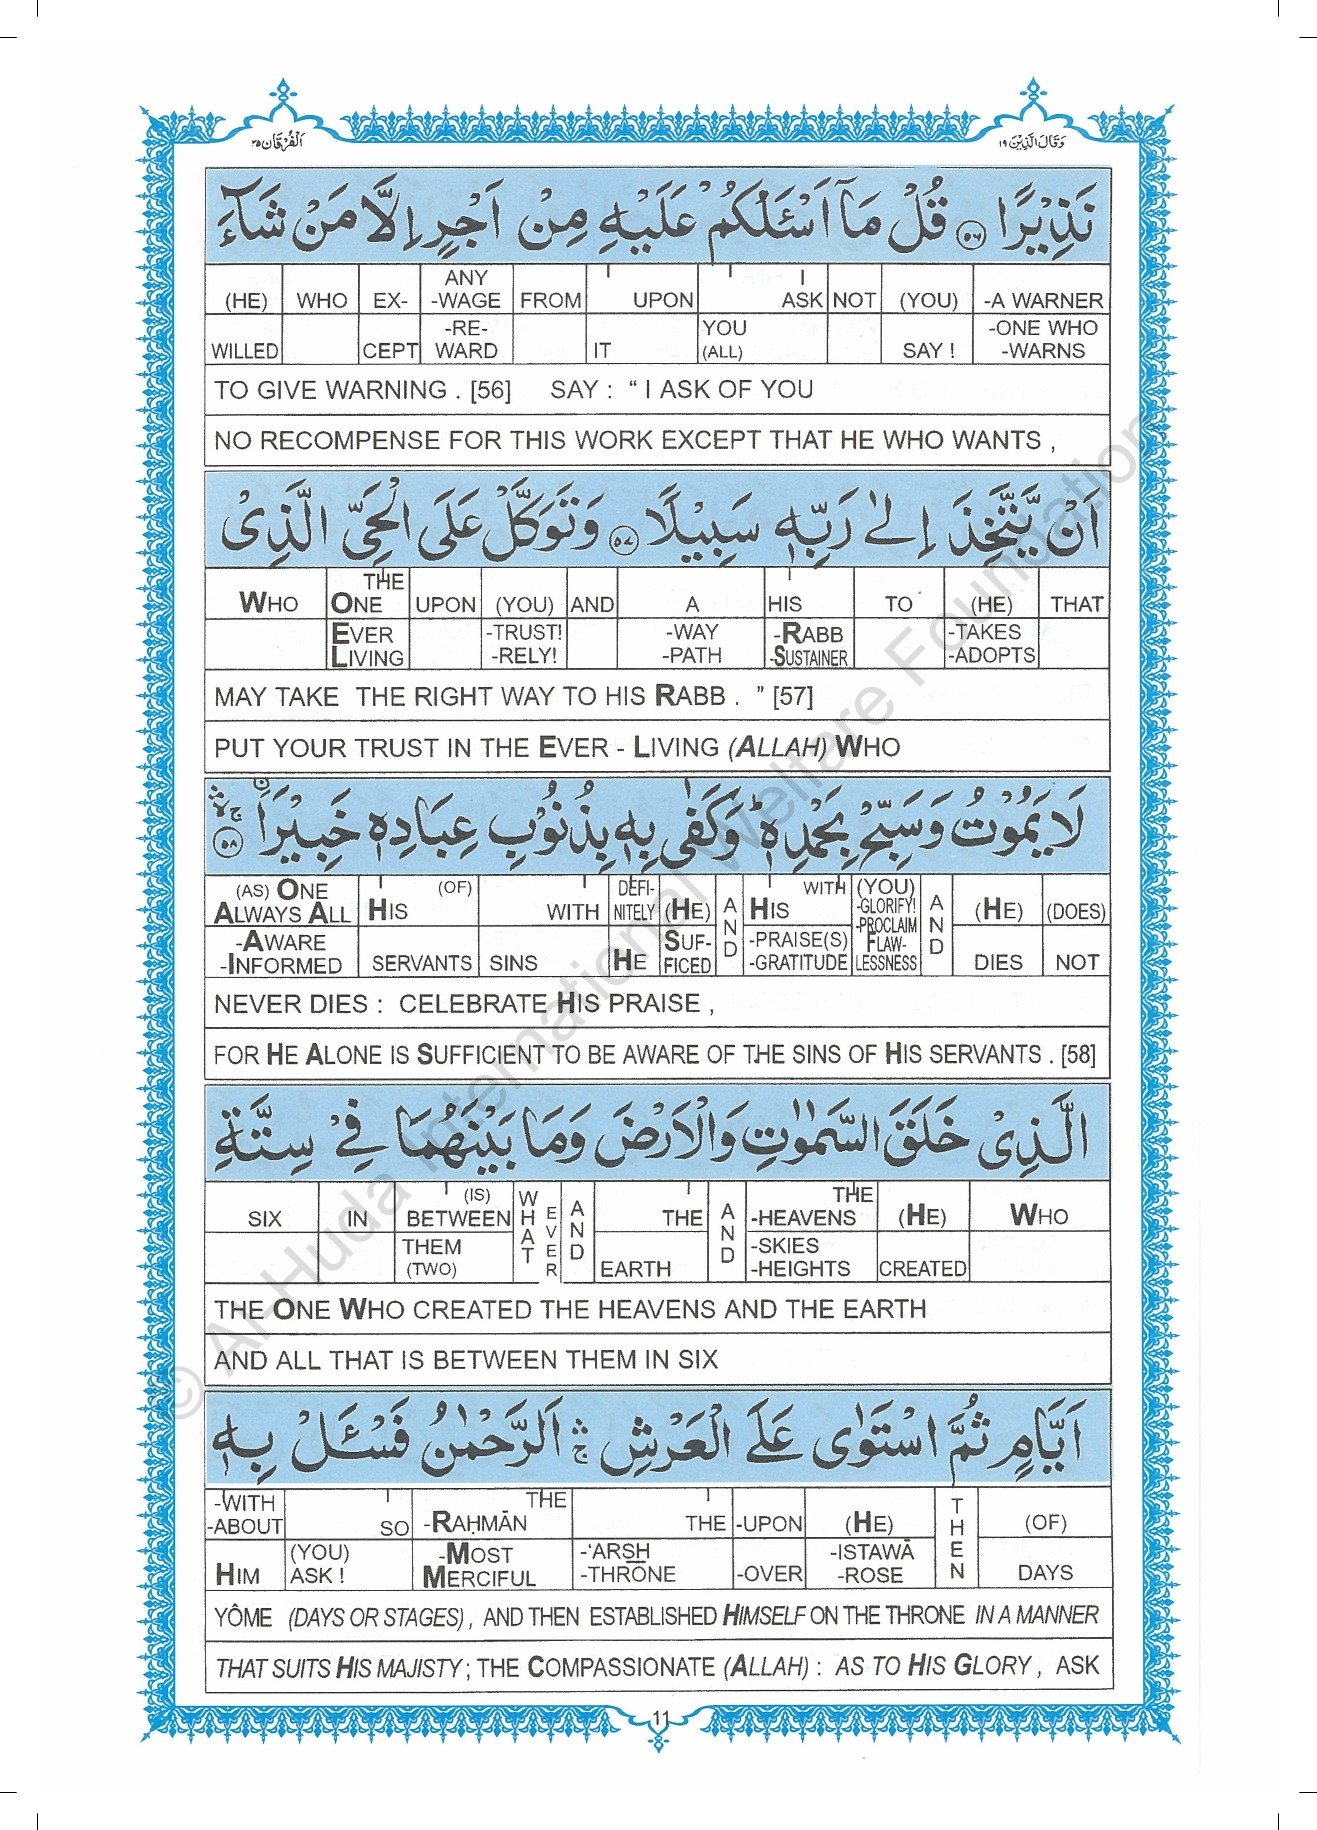 اَلْفُرْقَان ٢٥
وَقَالَ الَّذِيْنَ ١٩
نَذِيْرًا ٥٦ قُلْ مَآ اَسْـَٔلُكُمْ عَلَيْهِ مِنْ اَجْرٍ اِلَّا مَنْ شَآءَ
(HE) WHO EX- ANY -WAGE FROM UPON I ASK NOT (YOU) -A WARNER
WILLED CEPT -RE-WARD IT YOU (ALL) SAY ! -ONE WHO -WARNS
TO GIVE WARNING . [56] SAY : “ I ASK OF YOU
NO RECOMPENSE FOR THIS WORK EXCEPT THAT HE WHO WANTS ,
اَنْ يَّتَّخِذَ اِلٰى رَبِّهٖ سَبِيْلًا ٥٧ وَتَوَكَّلْ عَلَى الْحَيِّ الَّذِىْ
WHO THE ONE UPON (YOU) AND A HIS TO (HE) THAT
EVER LIVING -TRUST! -RELY! -WAY -PATH -RABB -SUSTAINER -TAKES -ADOPTS
MAY TAKE THE RIGHT WAY TO HIS RABB . ” [57]
PUT YOUR TRUST IN THE EVER - LIVING (ALLAH) WHO
لَا يَمُوْتُ وَسَبِّحْ بِحَمْدِهٖ ؕ وَكَفٰى بِهٖ بِذُنُوْبِ عِبَادِهٖ خَبِيْرَا ۙ ٥٨
(AS) ONE ALWAYS ALL HIS (OF) WITH DEFI-NITELY (HE) AND HIS WITH (YOU) -GLORIFY! -PROCLAIM FLAW-LESSNESS AND (HE) (DOES)
-AWARE -INFORMED SERVANTS SINS HE SUF-FICED -PRAISE(S) -GRATITUDE DIES NOT
NEVER DIES : CELEBRATE HIS PRAISE ,
FOR HE ALONE IS SUFFICIENT TO BE AWARE OF THE SINS OF HIS SERVANTS . [58]
الَّذِىْ خَلَقَ السَّمٰوٰتِ وَالْاَرْضَ وَمَا بَيْنَهُمَا فِىْ سِتَّةِ
SIX IN (IS) BETWEEN WHAT EVER AND THE AND THE -HEAVENS (HE) WHO
THEM (TWO) EARTH -SKIES -HEIGHTS CREATED
THE ONE WHO CREATED THE HEAVENS AND THE EARTH
AND ALL THAT IS BETWEEN THEM IN SIX
اَيَّامٍ ثُمَّ اسْتَوٰى عَلَى الْعَرْشِ ۛۚ اَلرَّحْمٰنُ فَسْـَٔلْ بِهٖ
-WITH -ABOUT SO THE -RAḤMĀN THE -UPON (HE) THEN (OF)
HIM (YOU) ASK ! -MOST MERCIFUL -‘ARSH -THRONE -OVER -ISTAWĀ -ROSE DAYS
YÔME (DAYS OR STAGES) , AND THEN ESTABLISHED HIMSELF ON THE THRONE IN A MANNER
THAT SUITS HIS MAJISTY ; THE COMPASSIONATE (ALLAH) : AS TO HIS GLORY , ASK
11
© Al-Huda International Welfare Foundation